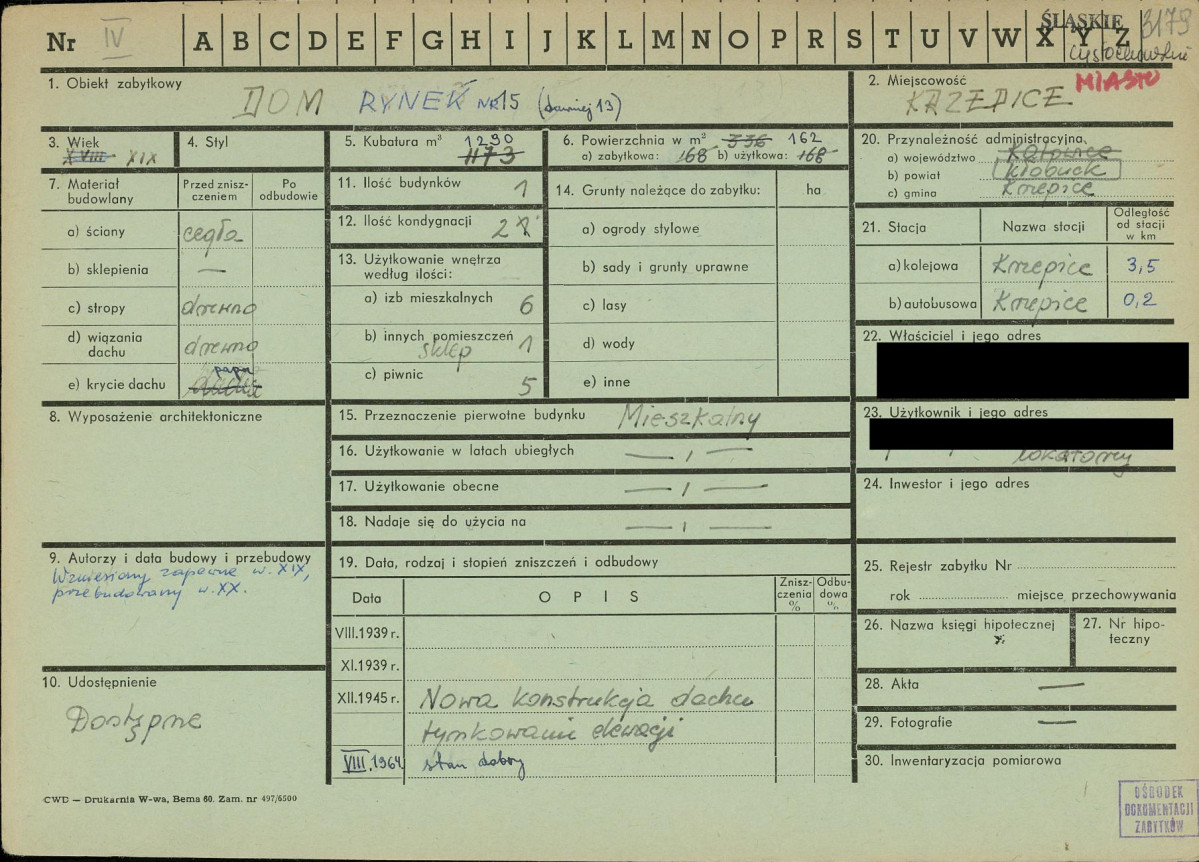 Nr IV A B C D E F G H I J K L M N O P R S T U V W X Y Z
ŚLĄSKIE 3179
częstochowskie
1. Obiekt zabytkowy
DOM RYNEK NR 15 (dawniej 13)
2. Miejscowość MIASTO
KRZEPICE
3. Wiek
XVIII XIX
4. Styl
5. Kubatura m³ 1290
1173
6. Powierzchnia w m² 336 162
a) zabytkowa: 168 b) użytkowa: 168
20. Przynależność administracyjna
a) województwo Katowice
b) powiat Kłobuck
c) gmina Krzepice
7. Materiał budowlany
Przed zniszczeniem
Po odbudowie
a) ściany cegła
b) sklepienia —
c) stropy drewno
d) wiązania dachu drewno
e) krycie dachu papa
11. Ilość budynków 1
12. Ilość kondygnacji 2
13. Użytkowanie wnętrza
według ilości:
a) izb mieszkalnych 6
b) innych pomieszczeń 1
sklep
c) piwnic 5
14. Grunty należące do zabytku: ha
a) ogrody stylowe
b) sady i grunty uprawne
c) lasy
d) wody
e) inne
21. Stacja Nazwa stacji Odległość od stacji w km
a) kolejowa Krzepice 3,5
b) autobusowa Krzepice 0,2
22. Właściciel i jego adres
23. Użytkownik i jego adres
lokatorzy
8. Wyposażenie architektoniczne
15. Przeznaczenie pierwotne budynku Mieszkalny
16. Użytkowanie w latach ubiegłych — „ —
17. Użytkowanie obecne — „ —
18. Nadaje się do użycia na — „ —
24. Inwestor i jego adres
9. Autorzy i data budowy i przebudowy
Wzniesiony zapewne w. XIX,
przebudowany w. XX.
19. Data, rodzaj i stopień zniszczeń i odbudowy
Data OPIS Zniszczenia % Odbudowa %
VIII.1939 r.
XI.1939 r.
XII.1945 r. Nowa konstrukcja dachu
tynkowanie elewacji
VIII.1964 stan dobry
25. Rejestr zabytku Nr
rok miejsce przechowywania
26. Nazwa księgi hipotecznej
27. Nr hipoteczny
10. Udostępnienie
Dostępne
28. Akta —
29. Fotografie —
30. Inwentaryzacja pomiarowa
CWD — Drukarnia W-wa, Bema 60. Zam. nr 497/6500
OŚRODEK
DOKUMENTACJI
ZABYTKÓW